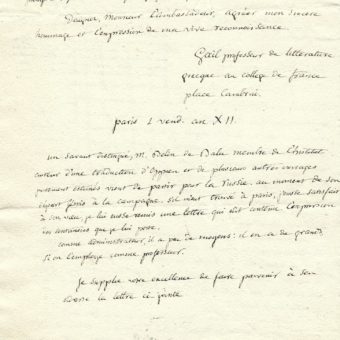 Daignez, Monsieur L'ambassadeur, agréer mon sincere
hommage et l'expression de ma vive reconnaissance.
Gail professeur de litterature
grecque au college de france
place Cambrai.
paris 1 vend. an XII.
un savant distingué, M. Belin de Balu membre de l'institut
auteur d'une traduction d'Oppien et de plusieurs autres ouvrages
justement estimés vient de partir pour la Russie. au moment de son
départ j'étois à la campagne. s'il m'eut trouvé à paris, j'eusse satisfait
à son vœu, je lui eusse remis une lettre qui eut contenu l'expression
des sentimens que je lui porte.
comme administrateur, il a peu de moyens: il en a de grands
si on l'emploie comme professeur.
je supplie votre excellence de faire parvenir à son
la lettre ci jointe